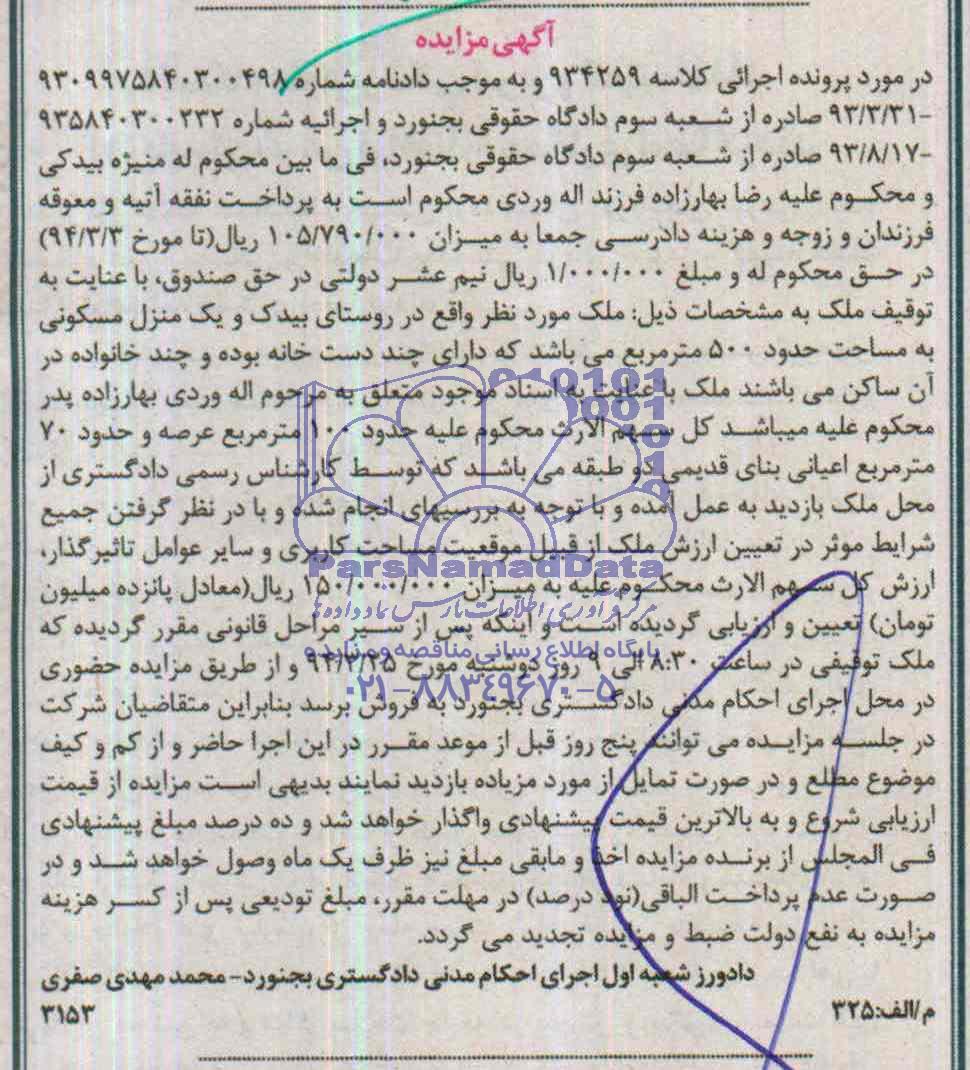 آگهی مزایده
در مورد پرونده اجرائی کلاسه ۹۳۴۲۵۹ و به موجب دادنامه شماره ۹۳۰۹۹۷۵۸۴۰۳۰۰۴۹۸
-۹۳/۳/۳۱ صادره از شعبه سوم دادگاه حقوقی بجنورد و اجرائیه شماره ۹۳۵۸۴۰۳۰۰۲۳۲
-۹۳/۸/۱۷ صادره از شعبه سوم دادگاه حقوقی بجنورد، فی ما بین محکوم له منیژه بیدکی
و محکوم علیه رضا بهارزاده فرزند اله وردی محکوم است به پرداخت نفقه آتیه و معوقه
فرزندان و زوجه و هزینه دادرسی جمعا به میزان ۱۰۵/۷۹۰/۰۰۰ ریال(تا مورخ ۹۴/۳/۳)
در حق محکوم له و مبلغ ۱/۰۰۰/۰۰۰ ریال نیم عشر دولتی در حق صندوق، با عنایت به
توقیف ملک به مشخصات ذیل: ملک مورد نظر واقع در روستای بیدک و یک منزل مسکونی
به مساحت حدود ۵۰۰ مترمربع می باشد که دارای چند دست خانه بوده و چند خانواده در
آن ساکن می باشند ملک با عنایت به اسناد موجود متعلق به مرحوم اله وردی بهارزاده پدر
محکوم علیه میباشد کل سهم الارث محکوم علیه حدود ۱۰۰ مترمربع عرصه و حدود ۷۰
مترمربع اعیانی بنای قدیمی دو طبقه می باشد که توسط کارشناس رسمی دادگستری از
محل ملک بازدید به عمل آمده و با توجه به بررسیهای انجام شده و با در نظر گرفتن جمیع
شرایط موثر در تعیین ارزش ملک از قبیل موقعیت مساحت کاربری و سایر عوامل تاثیرگذار،
ارزش کل سهم الارث محکوم علیه به میزان ۱۵۰/۰۰۰/۰۰۰ ریال(معادل پانزده میلیون
تومان) تعیین و ارزیابی گردیده است و اینکه پس از سیر مراحل قانونی مقرر گردیده که
ملک توقیفی در ساعت ۸:۳۰ الی ۹ روز دوشنبه مورخ ۹۴/۳/۲۵ و از طریق مزایده حضوری
در محل اجرای احکام مدنی دادگستری بجنورد به فروش برسد بنابراین متقاضیان شرکت
در جلسه مزایده می توانند پنج روز قبل از موعد مقرر در این اجرا حاضر و از کم و کیف
موضوع مطلع و در صورت تمایل از مورد مزیاده بازدید نمایند بدیهی است مزایده از قیمت
ارزیابی شروع و به بالاترین قیمت پیشنهادی واگذار خواهد شد و ده درصد مبلغ پیشنهادی
فی المجلس از برنده مزایده اخذ و مابقی مبلغ نیز ظرف یک ماه وصول خواهد شد و در
صورت عدم پرداخت الباقی(نود درصد) در مهلت مقرر، مبلغ تودیعی پس از کسر هزینه
مزایده به نفع دولت ضبط و مزایده تجدید می گردد.
دادورز شعبه اول اجرای احکام مدنی دادگستری بجنورد- محمد مهدی صفری
م/الف:۳۲۵
۳۱۵۳
ParsNamadData
مرکز فرآوری اطلاعات پارس نماد داده ها
پایگاه اطلاع رسانی مناقصه و مزایده
۰۲۱-۸۸۳۴۹۶۷۰-۵